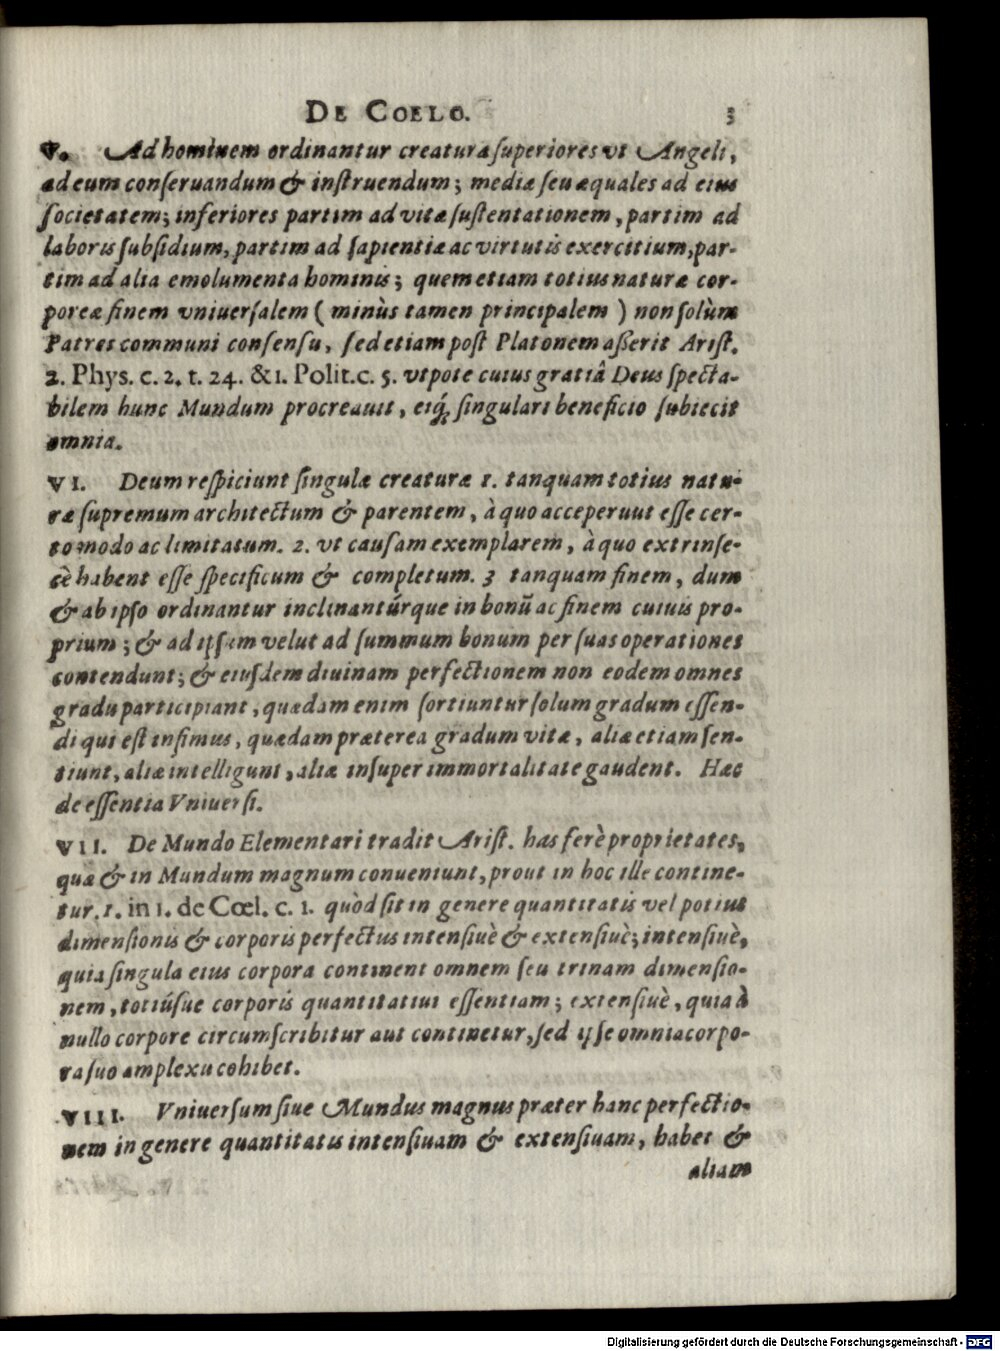 DE COELO. 3
V. Ad hominem ordinantur creaturæ superiores vt Angeli,
ad eum conseruandum & instruendum; mediæ seu æquales ad eius
societatem; inferiores partim ad vitæ sustentationem, partim ad
laboris subsidium, partim ad sapientiæ ac virtutis exercitium, par-
tim ad alia emolumenta hominis; quem etiam totius naturæ cor-
poreæ finem vniuersalem ( minùs tamen principalem ) non solùm
Patres communi consensu, sed etiam post Platonem aßerit Arist.
2. Phys. c. 2. t. 24. & 1. Polit. c. 5. vtpote cuius gratiâ Deus specta-
bilem hunc Mundum procreauit, eiq́; singulari beneficio subiecit
omnia.
VI. Deum respiciunt singulæ creaturæ 1. tanquam totius natu-
ræ supremum architectum & parentem, à quo acceperuut esse cer-
to modo ac limitatum. 2. vt causam exemplarem, à quo extrinse-
cè habent esse specificum & completum. 3 tanquam finem, dum
& ab ipso ordinantur inclinantúrque in bonũ ac finem cuiuis pro-
prium; & ad ipsum velut ad summum bonum per suas operationes
contendunt; & eiusdem diuinam perfectionem non eodem omnes
gradu participiant, quædam enim sortiuntur solum gradum essen-
di qui est infimus, quædam præterea gradum vitæ, aliæ etiam sen-
tiunt, aliæ intelligunt, aliæ insuper immortalitate gaudent. Hæc
de essentia Vniuersi.
VII. De Mundo Elementari tradit Arist. has ferè proprietates,
quæ & in Mundum magnum conueniunt, prout in hoc ille contine-
tur. 1. in 1. de Cœl. c. 1. quòd sit in genere quantitatis vel potius
dimensionis & corporis perfectus intensiuè & extensiuè; intensiuè,
quia singula eius corpora continent omnem seu trinam dimensio-
nem, totiúsue corporis quantitatiui essentiam; extensiuè, quia à
nullo corpore circumscribitur aut continetur, sed ipse omnia corpo-
ra suo amplexu cohibet.
VIII. Vniuersum siue Mundus magnus præter hanc perfectio-
nem in genere quantitatis intensiuam & extensiuam, habet &
aliam
Digitalisierung gefördert durch die Deutsche Forschungsgemeinschaft - DFG